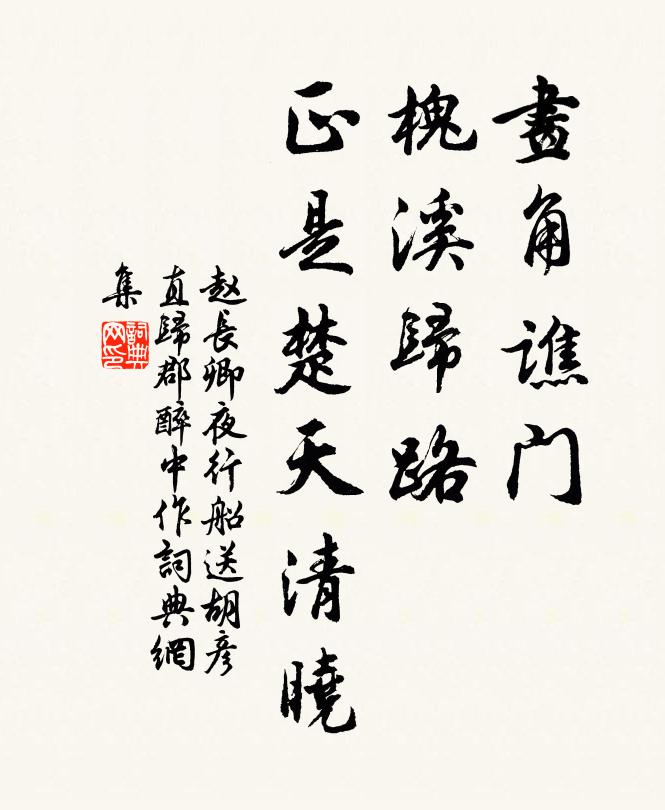 畫角譙门
槐溪歸路
正是楚天清曉
赵長卿夜行船送胡彦
直歸郡醉中作詞典網
集
詞典
网印